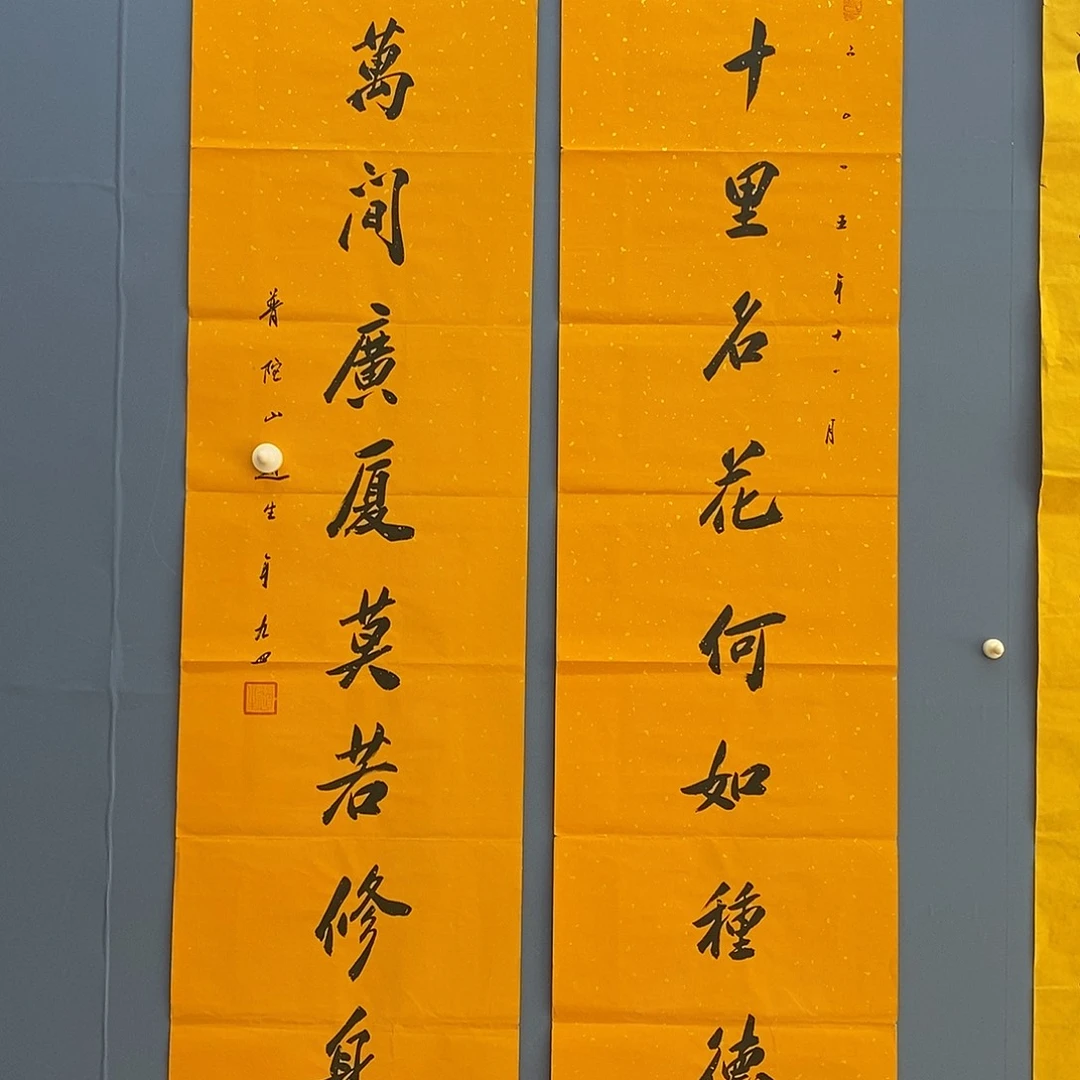 十里名花何如種德
二〇一五年十一月
萬间廣厦莫若修身
普陀山道生年九四